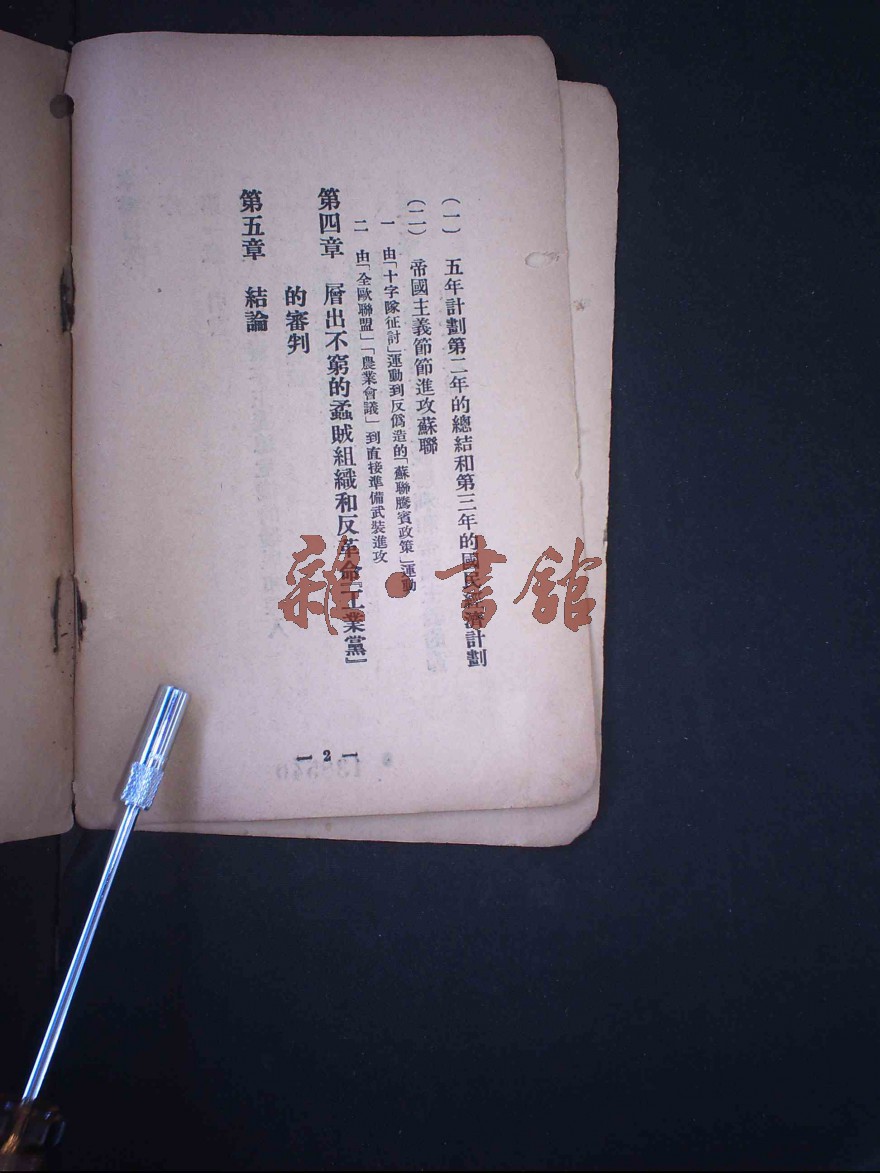 (一) 五年計劃第二年的總結和第三年的國民經濟計劃
(二) 帝國主義節節進攻蘇聯
一 由「十字隊征討」運動到反僞造的「蘇聯騰賓政策」運動
二 由「全歐聯盟」「農業會議」到直接準備武裝進攻
第四章 層出不窮的蟊賊組織和反革命『工業黨』
的審判
第五章 結論
— 2 —
雜·書館